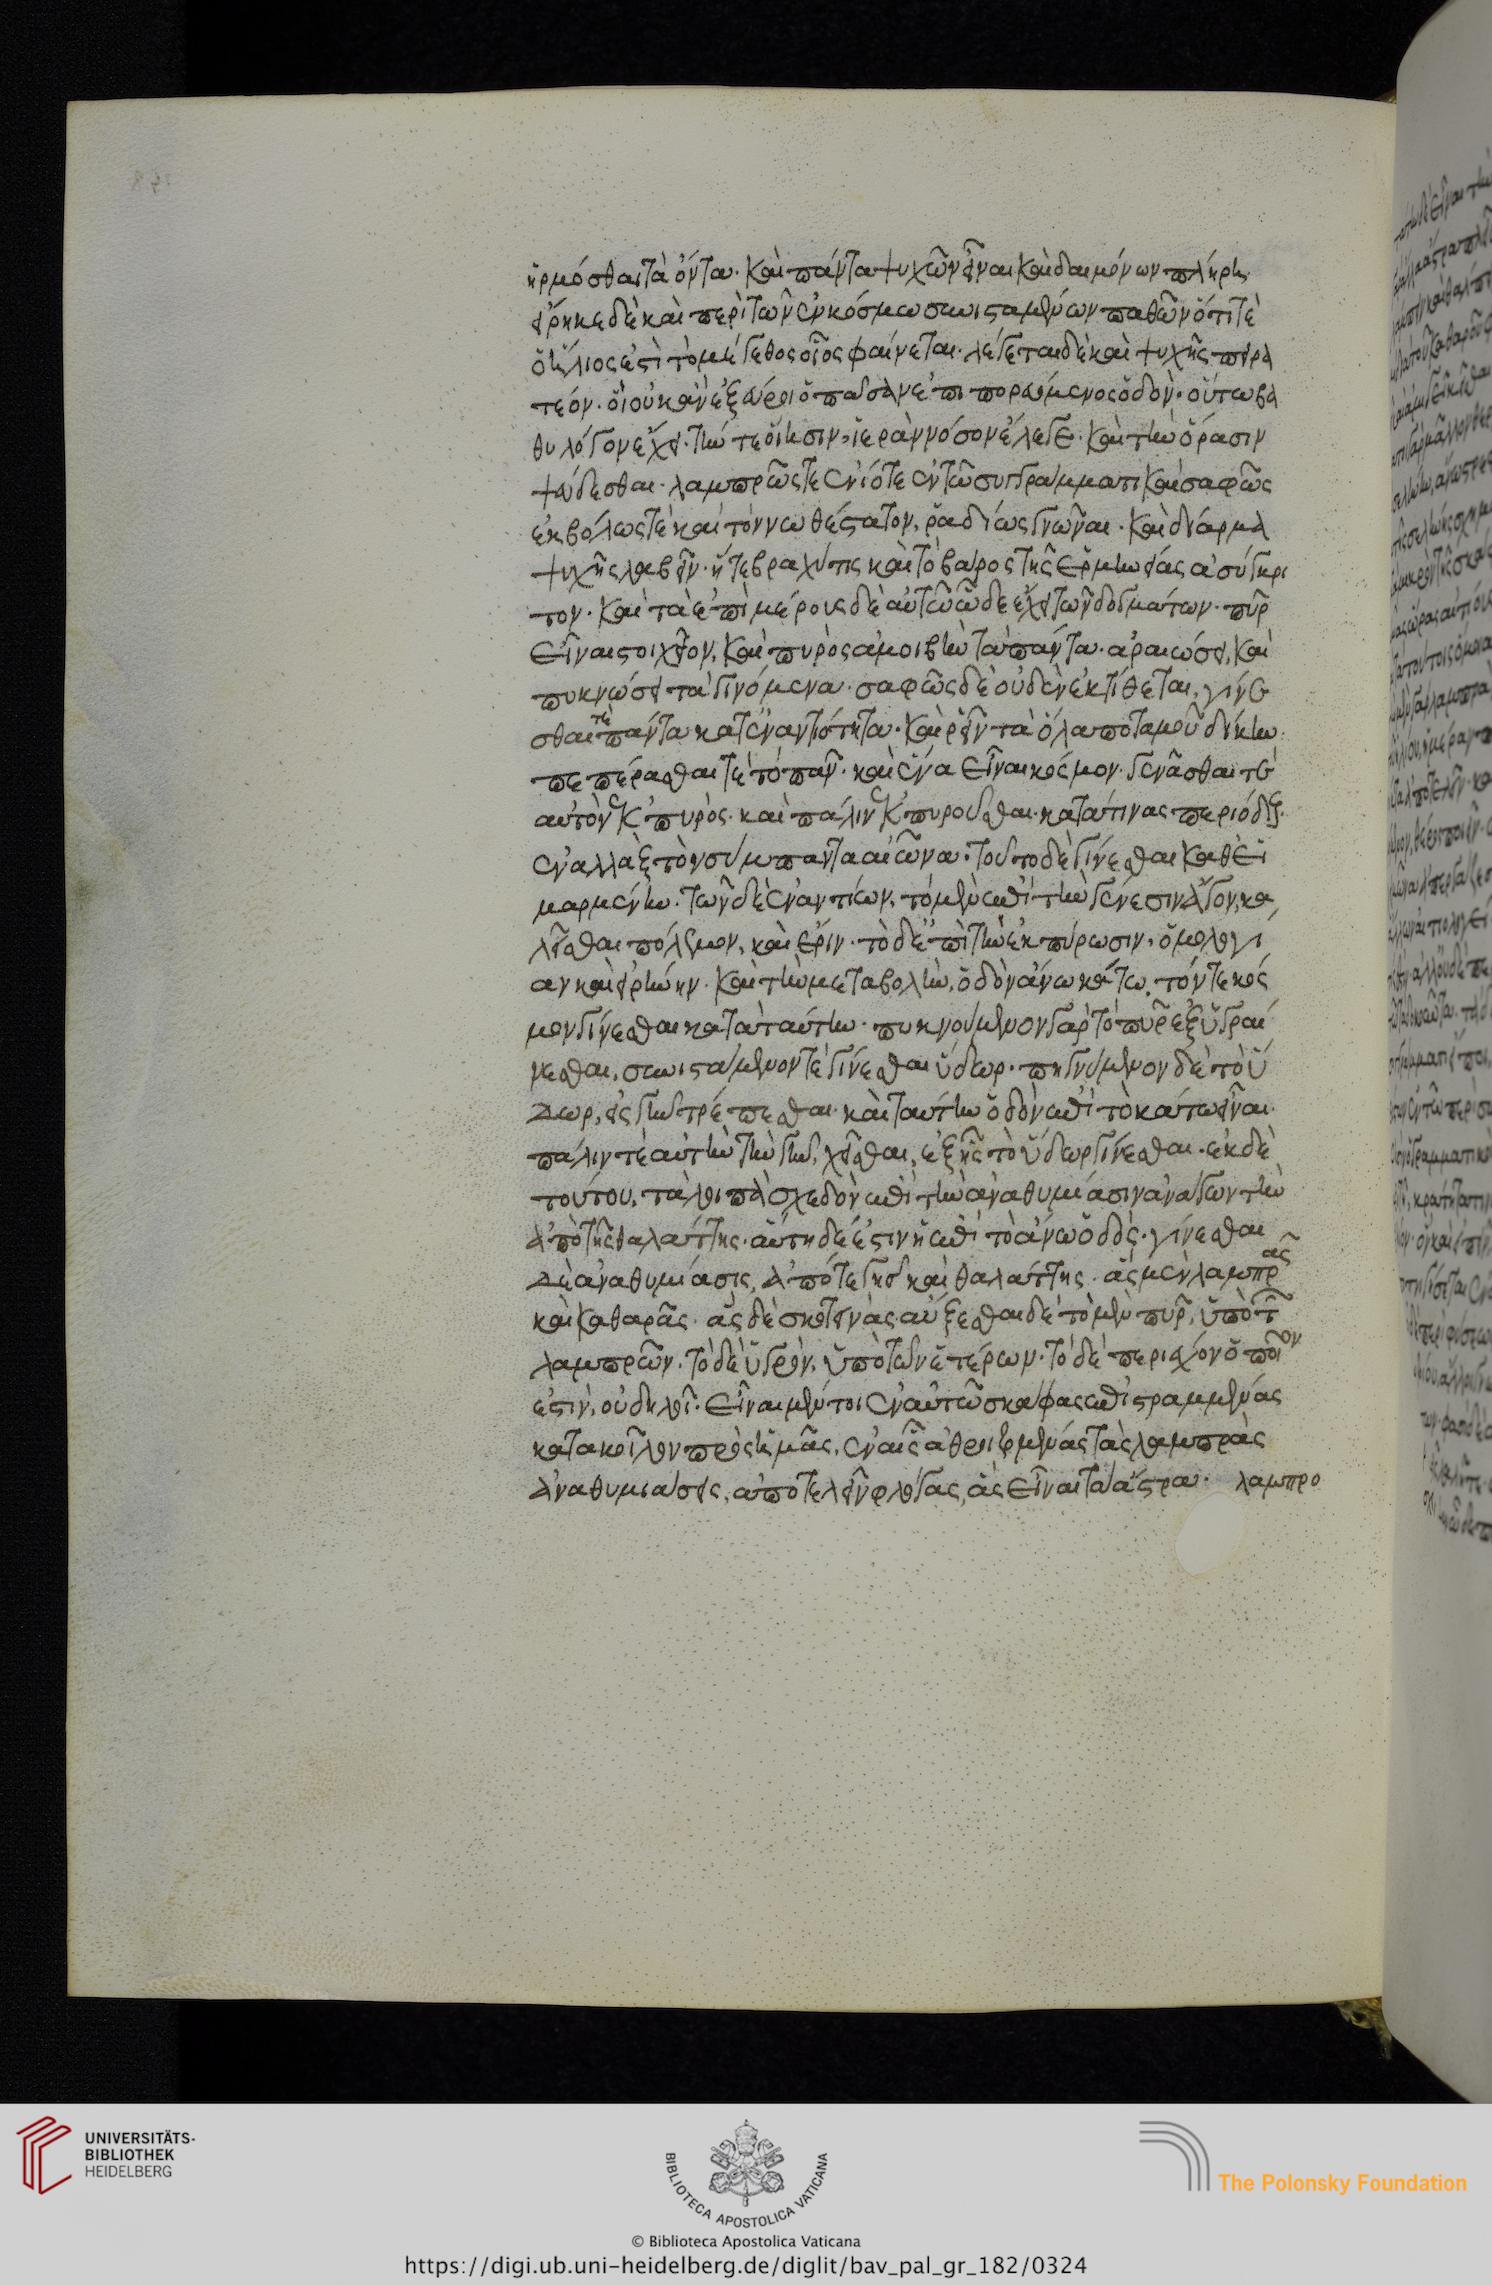 ἡρμόσθαι τὰ ὄντα· καὶ πάντα ψυχῶν εἶναι καὶ δαιμόνων πλήρη·
εἴρηκε δὲ καὶ περὶ τῶν ἐν κόσμω συνισταμένων παθῶν· ὅτι τὲ
ὁ ἥλιος ἐστὶ τὸ μέγεθος οἷος φαίνεται· λέγεται δὲ καὶ ψυχῆς πειρα
τέον· ὃ οὐκ ἂν ἐξεύροι ὁ πᾶσαν ἐπιπορευόμενος ὁδόν· οὕτω βα
θυ λόγον ἔχει· τήν τε οἴησιν, ἱερὰν νόσον ἔλεγε· καὶ τὴν ὅρασιν
ψεύδεσθαι· λαμπρῶς τε ἐνίοτε ἐν τῶ συγγράμματι καὶ σαφῶς
ἐκβόλως τὲ καὶ τὸν νωθέστατον, ῥαδίως γνῶναι· καὶ δίαρμα
ψυχῆς λαβεῖν· ἥ τε βραχύτης καὶ τὸ βάρος τῆς ἑρμηνείας ἀσύγκρι
τον· καὶ τὰ ἐπὶ μέρους δὲ αὐτοῦ ὧδε ἔχει τῶν δογμάτων· πῦρ
εἶναι στοιχεῖον, καὶ πυρὸς ἀμοιβὴν τὰ πάντα· ἀραιώσει, καὶ
πυκνώσει τὰ γινόμενα· σαφῶς δὲ οὐδὲν ἐκτίθεται, γίνε
σθαι τὲ πάντα κατ' ἐναντιότητα· καὶ ῥεῖν τὰ ὅλα ποταμοῦ δίκην
πεπεράσθαι τὲ τὸ πᾶν· καὶ ἕνα εἶναι κόσμον· γενᾶσθαι τὲ
αὐτὸν ἐκ πυρὸς· καὶ πάλιν ἐκπυροῦσθαι· κατά τινας περιόδους·
ἐναλλὰξ τὸν σύμπαντα αἰῶνα· τοῦτο δὲ γίνεσθαι καθ' εἱ
μαρμένην· τῶν δὲ ἐναντίων, τὸ μὲν ἐπὶ τὴν γένεσιν ἄγον, κα
λεῖσθαι πόλεμον, καὶ ἔριν· τὸ δ' ἐπὶ τὴν ἐκπύρωσιν, ὁμολογί
αν καὶ εἰρήνην· καὶ τὴν μεταβολὴν, ὁδὸν ἄνω κάτω, τόν τε κόσ
μον γίνεσθαι κατ' αὐτήν· πυκνούμενον γὰρ τὸ πῦρ ἐξυγραί
νεσθαι, συνιστάμενόν τὲ γίνεσθαι ὕδωρ· πηγνύμενον δὲ τὸ ὕ
δωρ, εἰς γῆν τρέπεσθαι· καὶ ταύτην ὁδὸν ἐπὶ τὸ κάτω εἶναι·
πάλιν τὲ αὐτὴν τὴν γῆν, χεῖσθαι, ἐξ ἧς τὸ ὕδωρ γίνεσθαι· ἐκ δὲ
τούτου, τὰ λοιπὰ σχεδὸν ἐπὶ τὴν ἀναθυμίασιν ἀνάγων τὴν
ἀπὸ τῆς θαλάττης· αὕτη δέ ἐστιν ἡ ἐπὶ τὸ ἄνω ὁδός· γίνεσθαι
δὲ ἀναθυμίασις, ἀπό τε γῆς καὶ θαλάττης· ἃς μὲν λαμπρὰς
καὶ καθαρᾶς· ἃς δὲ σκοτεινὰς αὔξεσθαι δὲ τὸ μὲν πῦρ, ὑπὸ τῶν
λαμπρῶν· τὸ δὲ ὑγρὸν, ὑπὸ τῶν ἑτέρων· τὸ δὲ περιέχον ὁποῖον
ἐστιν, οὐ δηλοῖ· εἶναι μέντοι ἐν αὐτῶ σκάφας ἐπιστραμμένας
κατὰ κοῖλον πρὸς ἡμᾶς, ἐν αἷς ἀθροιζομένας τὰς λαμπρὰς
ἀναθυμιάσεις, ἀποτελεῖν φλόγας, ἃς εἶναι τὰ ἄστρα· λαμπρο
UNIVERSITÄTS-
BIBLIOTHEK
HEIDELBERG
BIBLIOTECA APOSTOLICA VATICANA
The Polonsky Foundation
© Biblioteca Apostolica Vaticana
https://digi.ub.uni-heidelberg.de/diglit/bav_pal_gr_182/0324